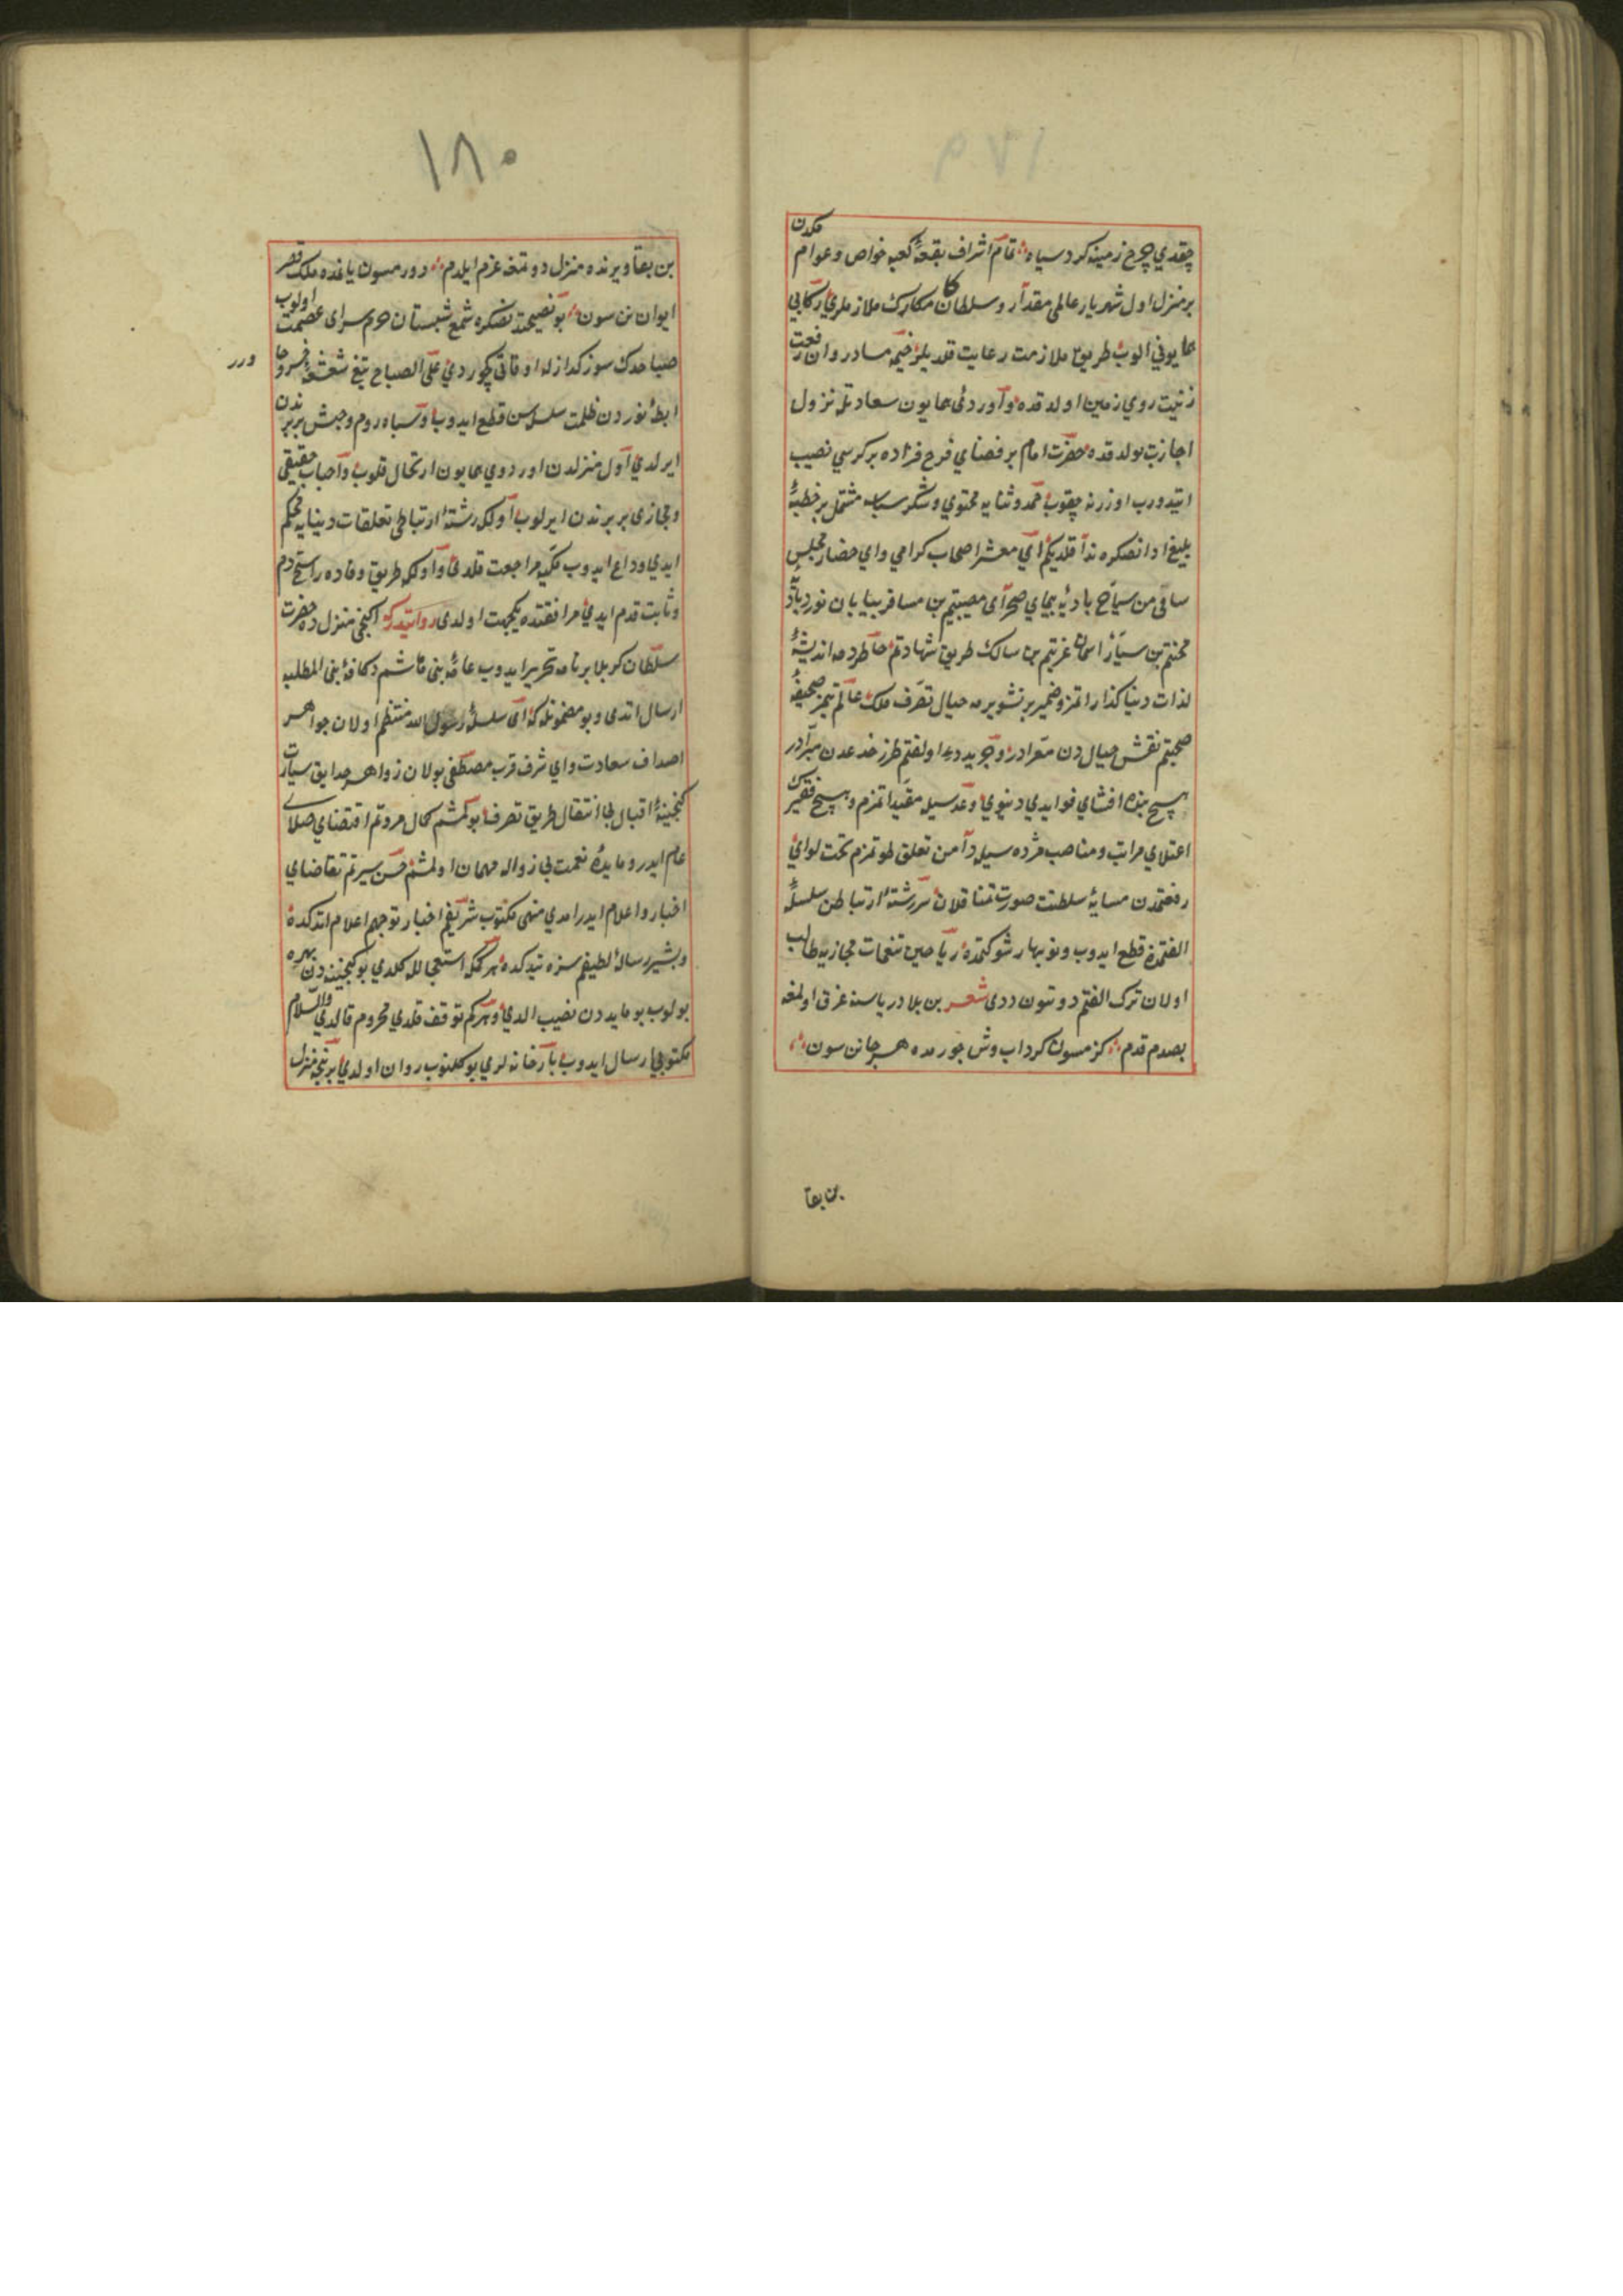 ١٧٩
چقدي چرخ زمينه كرد سياه تمام اشراف بقعهٔ كعبه خواص وعوام مكدن
بر منزل اول شهريار عالى مقدار وسلطان مكارك ملازملرى ركابى
همايونى الوب طريق ملازمت رعايت قلديلر خيمه روان رفعت
زينت روي زمين اولدقده واوردئى همايون سعادتله نزول
اجازت بولدقده حضرت امام بر فضاي فرح فزاده بر كرسي نصيب
ايتدورب اوزرنه چقوب حمد وثنايه محتوي وشكر سپاسه مشتمل بر خطبهٔ
بليغ ادا اتدنصكره ندا قلديكم اي معشر اصحاب كرامي واي حضار مجلس
سامى من سياح باديه پيماي صحراى مصيبتم بن مسافر بيابان نورد
محنتم بن سيار اسمان غربتم بن سالك طريق شهادتم خاطرمه انديشهٔ
لذات دنيا كذار اتمز وضمير پر تشويرمه خيال تصرف ملك عالم ايتمز صحيفهٔ
صحبتم نقش خيال دن معرادر وجريدهٔ اولفتم طرز خدعه دن مبرادر
هيچ بنده افشاي فوايدي دنيوي وعده سيله مقيد اتمزم وهيچ فقيرى
اعتلاي مراتب ومناصب مژده سيله دامن تعلق طوتمزم تحت لواي
رفعتمدن سايهٔ سلطنت صورت تمنا قلان سررشتهٔ ارتباطن سلسلهٔ
الفتمدن قطع ايدوب ونوبهار شوكتمدن رياحين تنعمات مجازيه طالب
اولان ترك الفتم دوتون ددى شعر بن بلا درياسنه غرق اولمغه
بصدم قدم كزمسون كرداب وش جورمده هر جانن سون
بن بقا
١٨٠
بن بقا ويرنده منزل دوتمغه عزم ايلدم دورمسون ياغده ملك قصر
ايوانن سون بو نصيحتدنصكره شمع شبستان حرم سراى عصمت اولوب
صباحدك سوز كدازله اوقاتى كچوردي على الصباح تيغ شعشعهٔ خسرو خا
ور
ابطهٔ نوردن ظلمت سلسله سن قطع ايدوب وسپاه روم وحبش بربرندن
ايرلدي اول منزلدن اوردوي همايون ارتحال قلوب واحباب حقيقى
ومجازى بربرندن ايرلوب اولكه رشتهٔ ارتباطى تعلقات دنيايه محكم
ايدي وداع ايدوب مكيه مراجعت قلدى واولكه طريق وفاده راسخ دم
وثابت قدم ايدي مرافقتده يكجهت اولدى روايتدركه اكنجى منزلده حضرت
سلطان كربلا بر نامه تحرير ايدوب عامهٔ بنى هاشم وكافهٔ بنى المطلبه
ارسال اتدى وبو مضمونله كه اى سلسلهٔ رسول الله منتظم اولان جواهر
اصداف سعادت واي شرف قرب مصطفى بولان زواهر حدايق سيادت
كنجينهٔ اقبال بى انتقال طريق تصرف بولمشم كمال مروتم اقتضاي صلاى
عام ايدر ومايدهٔ نعمت بى زواله مهمان اولمشم حسن سيرتم تقاضاي
اخبار واعلام ايدر امدي منهى مكتوب شريفم اخبار توجهم اعلام اتدكده
وبشير رسالهٔ لطيفم سزه يتدكده هركمكه استعجالله كلدي بو كنجينه دن بهره
بولوب بو مايده دن نصيب الدي وهركم توقف قلدي محروم قالدي والسلام
مكتوبى ارسال ايدوب بارخانه لرى يوكلنوب روان اولدي بر نيجه منزل